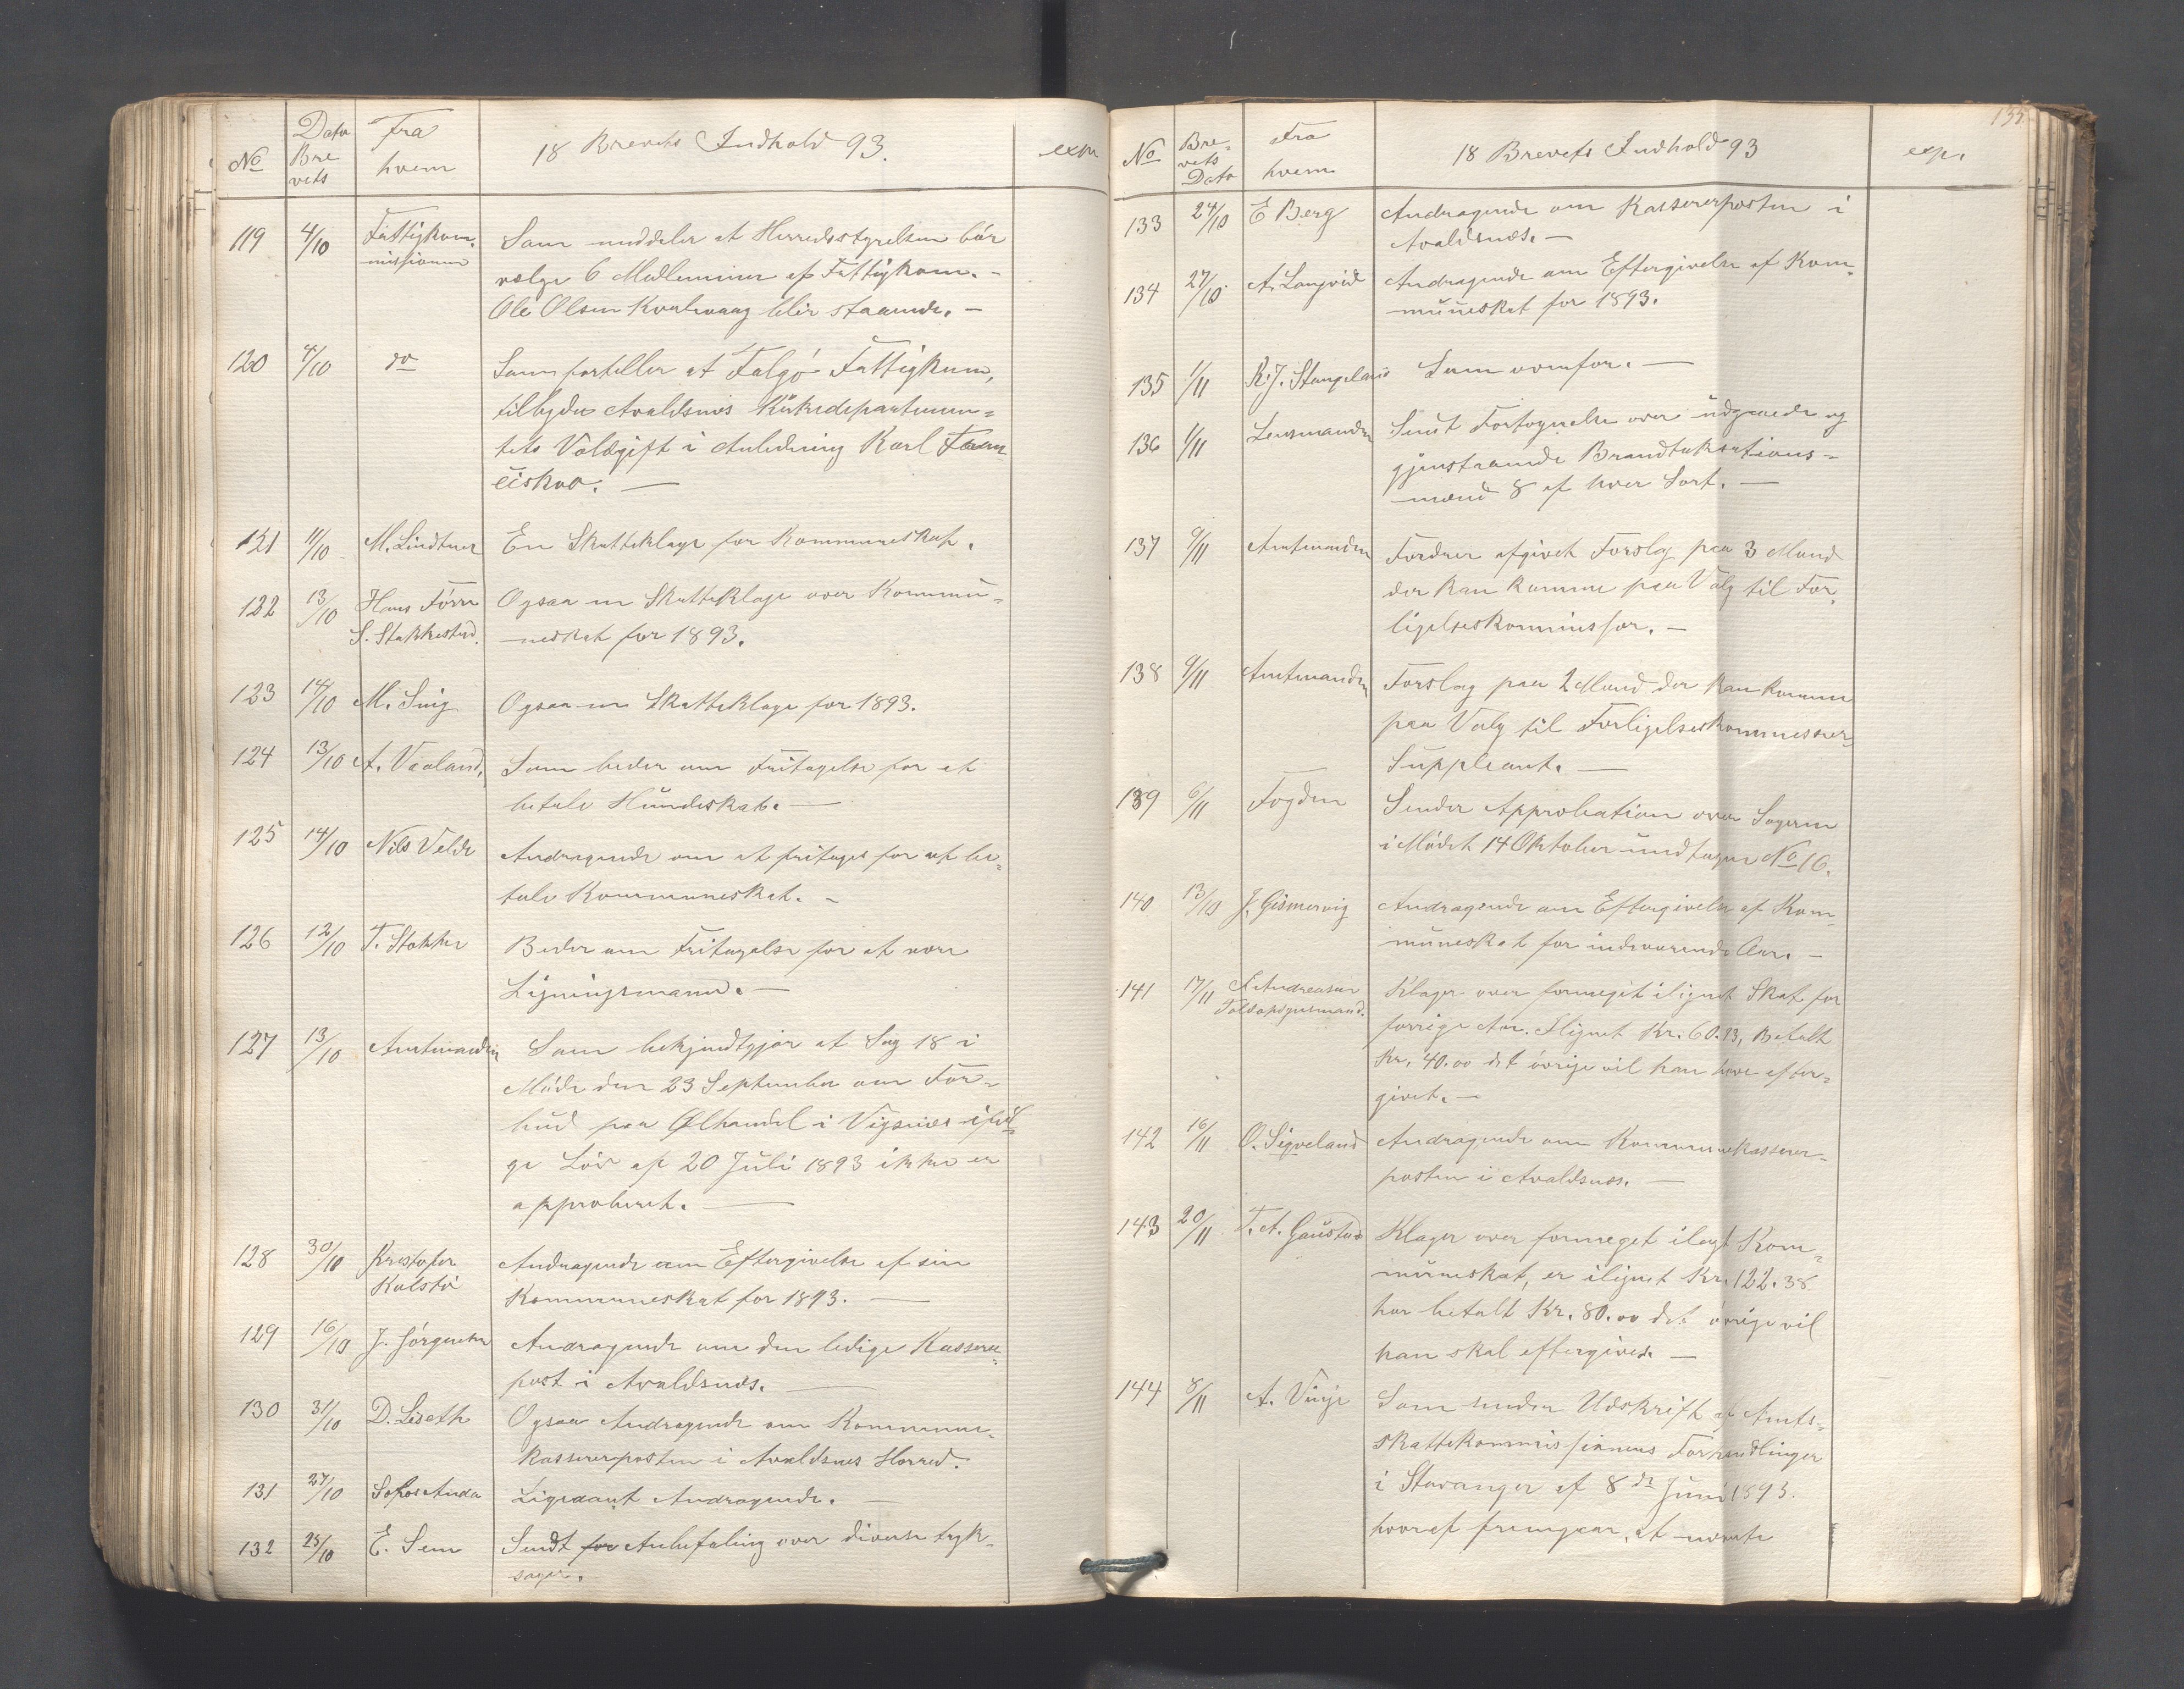 No
Dato
Bre
vets
Fra
hvem
18 Brevets Indhold 93.
exp
119 4/10 Fattigkom. Som meddeler at Herredsstyrelsen bør
missionen
vælge 6 Medlemmer af Fattigkom.-
Ole Olsen Kvalevaag blir staaende. -
120 4/10 do Som forteller at Falgø Fattigkom.
tilbyder Avaldsnes Kirkedepartemen-
tets Voldgift i Anledning Karl
121 11/10 M. Lindtner En Skatteklage for Kommuneskat.
122 13/10 Hans Førre Ogsaa en Skatteklage over Kommu-
S. Stakkestad. neskat for 1893.
123 14/10 M. Ogsaa en Skatteklage for 1893.
124 13/10 A. Vaaland, Som beder om Fritagelse for at
betale Hundeskat. -
125 14/10 Nils Velde Andragende om at fritages for at be-
tale Kommuneskat. -
126 12/10 T. Stakker Beder om Fritagelse for at være
Ligningsmand. -
127 13/10 Amtmanden Som bekjendtgjør at Sag 18 i
Møde den 23 September om For-
bud paa Ølhandel i Vigsnes iføl-
ge Lov af 20 Juli 1893 ikke er
approberet. -
128 30/10 Kristofer Andragende om Eftergivelse af sin
Kolstø
Kommuneskat for 1893. -
129 16/10 J. Jørgensen Andragende om den ledige Kasserer-
post i Avaldsnes. -
130 31/10 D. Liseth Ogsaa Andragende om Kommune-
kassererposten i Avaldsnes Herred.
131 27/10 Sofus Anda Ligedant Andragende. -
132 25/10 E. Sem Sendt for Anbefaling over diverse tryk-
sager.
133
No
Bre-
vets
Dato
Fra
hvem
18 Brevets Indhold 93
exp.
133 24/10 E Berg Andragende om Kassererposten i
Avaldsnes. -
134 27/10 A. Langvid Andragende om Eftergivelse af Kom-
muneskat for 1893.
135 1/11 K. J. Stangeland Som ovenfor. -
136 1/11 Lensmanden Sendt Fortegnelse over udgaaede og
gjenstaaende Brandtakstations-
mænd 8 af hver Sort. -
137 9/11 Amtmanden Fordrer afgivet Forslag paa 3 Mand
der kan komme paa Valg til For-
ligelseskommissær. -
138 9/11 Amtmanden Forslag paa 2 Mand der kan komme
paa Valg til Forligelseskommissær
Suppleant. -
139 6/11 Fogden Sender Approbation over Sagerne
i Mødet 14 Oktober undtagen No 16.
140 13/10 J. Gismervig Andragende om Eftergivelse af Kom-
muneskat for indeværende Aar. -
141 17/11 Andreasen Klager over formeget ilignet Skat for
Toldopsynsmand.
forrige Aar. Ilignet Kr. 60.93, Betalt
Kr. 40.00 det øvrige vil han have efter-
givet. -
142 16/11 O. Sigveland Andragende om Kommunekasserer-
posten i Avaldsnes. -
143 20/11 T. A. Gaustad Klager over formeget ilagt Kom-
muneskat, er ilignet Kr. 122.38
har betalt Kr. 80.00 det øvrige vil
han skal eftergives. -
144 8/11 A. Vinje Som sender Udskrift af Amts-
skattekommissionens Forhandlinger
i Stavanger af 8de Juni 1893.
hvoraf fremgaar, at